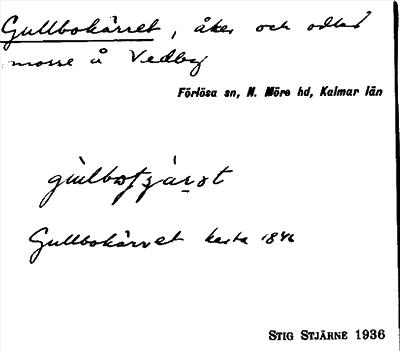 Gullbokärret, åker och odlad
mosse å Vedby
Förlösa sn, N. Möre hd, Kalmar län
Gullbokärret karta 1846
STIG STJÄRNE 1936